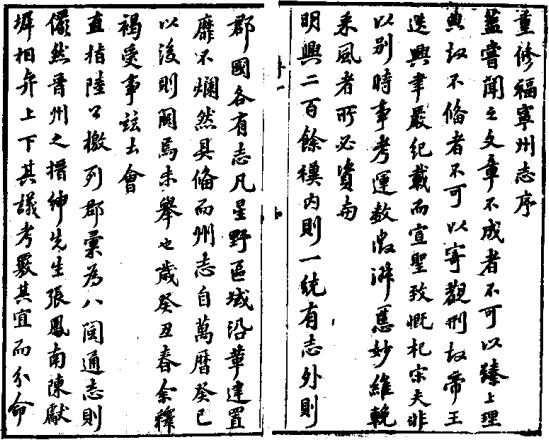 重修福寧州志序
蓋嘗聞之文章不成者不可以臻上理
典故不備者不可以寄觀刑故帝王
迭興聿嚴紀載而宣聖致慨杞宋夫非
以別時事考運數激湃慝妙維輓
采風者所必資与
明興二百餘禩內則一統有志外則
郡國各有志凡星野區域沿革建置
靡不爛然具備而州志自萬曆癸巳
以後則闕焉未舉也歲癸丑春余釋
褐受事茲土會
直指陸公檄列郡彙為八閩通志則
儼然晋州之搢紳先生張鳳南陳猷
墀相弁上下其議考覈其宜而分命